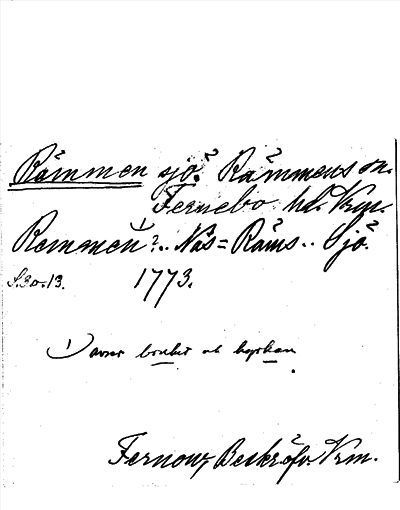 Rämmen sjö. Rämmens sn.
Fernebo hd. Vrm.
Remmen 1) ?.. Näs = Räms.. Sjö.
S. 30. 13. 1773.
1) avser bruket och kyrkan.
Fernow, Beskrefv. Vrm.